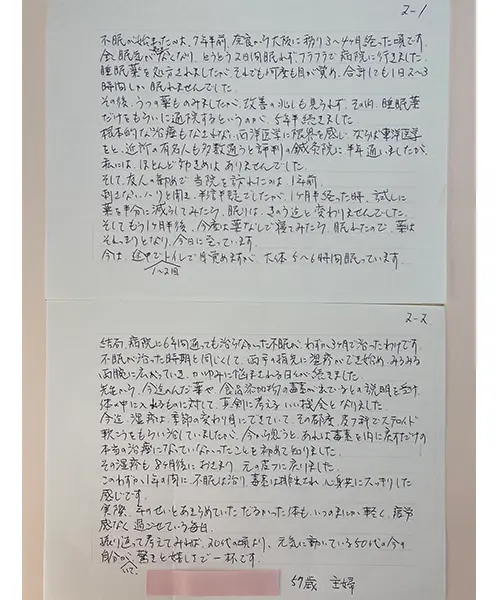 2-1
不眠が始まったのは、7年半前、奈良から大阪に移り3〜4ヶ月経った頃です。
全く眠気がなくなり、とうとう2日間眠れず、フラフラで病院に行きました。
睡眠薬を処方されましたが、それでも何度も目が覚め、合計でも1日2〜3
時間しか眠れませんでした。
その後、うつの薬ものみましたが、改善の兆しも見られず、その内、睡眠薬
だけをもらいに通院するというのが、5年半続きました。
根本的な治療もなされない西洋医学に限界を感じ、ならば東洋医学
をと、近所の有名人も多数通うと評判の鍼灸院に半年通いましたが、
私には、ほとんど効きめはありませんでした。
そして友人の勧めで当院を訪れたのは、1年前。
刺さないハリと聞き、半信半疑でしたが、1ヶ月半経った時、試しに
薬を半分に減らしてみたら、眠りは、きのう迄と変わりませんでした。
そしてもう1ヶ月半後、今度は薬なしで寝てみたら、眠れたので、薬は
それっきりとなり、今日に至っています。
今は、途中で1〜2回トイレで目覚めますが、大体5〜6時間眠っています。
2-2
結局、病院に6年間通っても治らなかった不眠が、わずか3ヶ月で治ったわけです。
不眠が治った時期と同じくして、両手の指先に湿疹ができ始め、みるみる
両腕に広がっていき、かゆみに悩まされる日々が続きました。
先生から、今迄のんだ薬や、食品添加物の毒素が出ているとの説明を受け、
体の中に入れるものに対して、真剣に考えるいい機会となりました。
今迄、湿疹は、季節の変わり目にできていて、その都度、皮フ科でステロイド
軟こうをもらい治していましたが、今から思うと、あれは毒素を内に戻すだけの
本当の治療になっていなかったことも初めて知りました。
その湿疹も8ヶ月後におさまり、元の皮フに戻りました。
このわずか1年の内に、不眠は治り、毒素は排出され、心身共にスッキリした
感じです。
実際、年のせいとあきらめていただるかった体も、いつのまにか軽く、疲労
感なく過ごせている毎日。
振り返って考えてみれば、20代の頃より、元気に動いている50代の今の
自分がいて、驚きと嬉しさで一杯です。
57歳 主婦